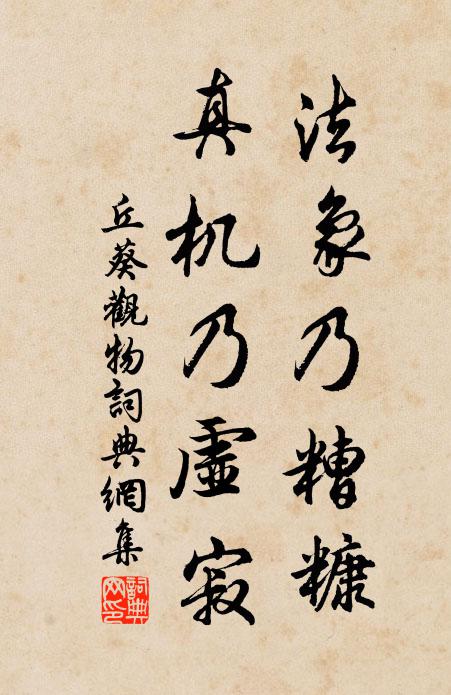 法象乃糟糠
真机乃虛寂
丘葵觀物詞典網集
詞典网印